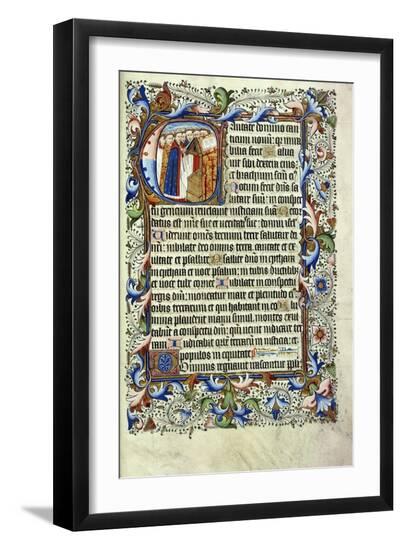 Cantate domino can
ticum novum: quia mira
bilia fecit. Salva
vit sibi dextera eius: et
brachium scm eius
Notum fecit dns sa
lutare suu: in conspec
tu gencium revelavit iusticiam sua. Recor
datus est mie sue: et veritatis sue domui isrl.
Viderunt omes termini terre: salutare dei
nri. Iubilate deo omnis terra: cantate et ex
ultate et psallite. Psallite dno in cythara
in cythara et voce psalmi: in tubis ductilib
et voce tube cornee. Iubilate in conspectu
regis dni: moveatur mare et plenitudo ei
orbis terrarum et qui habitant in eo. Flu
mina plaudent manu simul: montes exul
tabunt a conspectu dni: qm venit iudicare ter
ram. Iudicabit orbem terrarum in iusticia: et
populos in equitate
Dominus regnavit irascantur ppli: